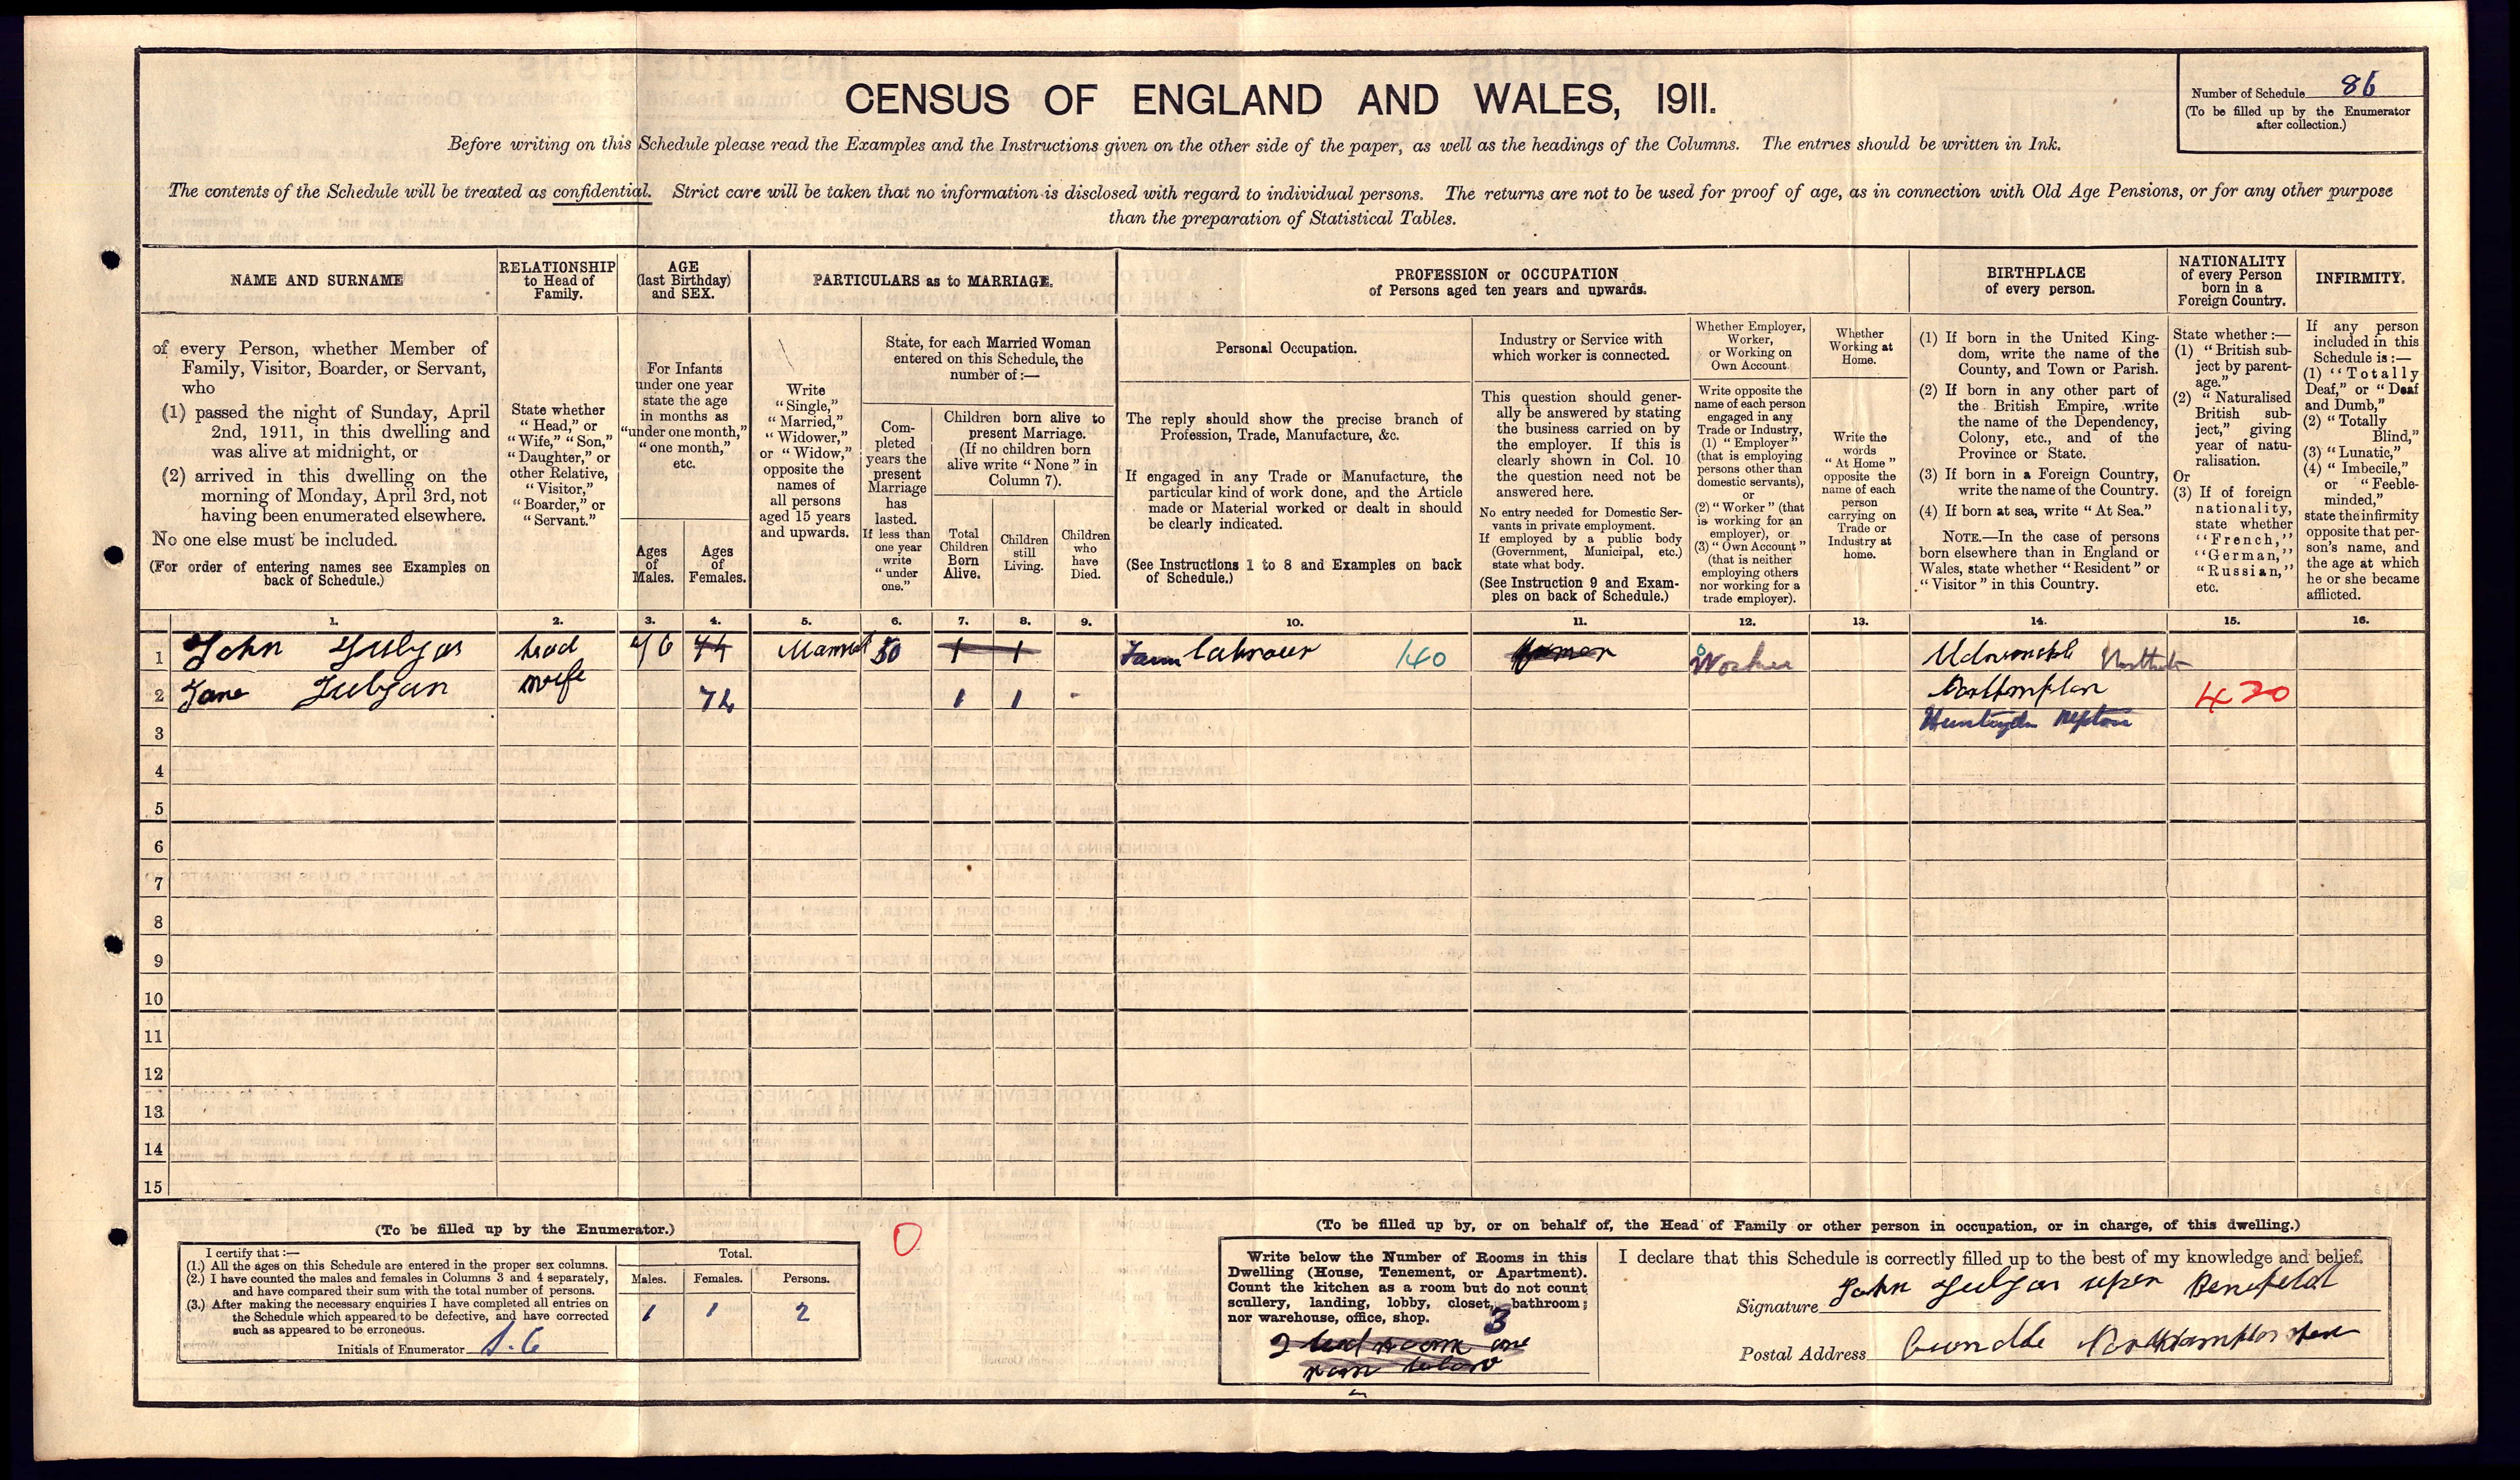 CENSUS OF ENGLAND AND WALES, 1911.
Number of Schedule 86
(To be filled up by the Enumerator
after collection.)
Before writing on this Schedule please read the Examples and the Instructions given on the other side of the paper, as well as the headings of the Columns. The entries should be written in Ink.
The contents of the Schedule will be treated as confidential. Strict care will be taken that no information is disclosed with regard to individual persons. The returns are not to be used for proof of age, as in connection with Old Age Pensions, or for any other purpose
than the preparation of Statistical Tables.
NAME AND SURNAME
of every Person, whether Member of
Family, Visitor, Boarder, or Servant,
who
(1) passed the night of Sunday, April
2nd, 1911, in this dwelling and
was alive at midnight, or
(2) arrived in this dwelling on the
morning of Monday, April 3rd, not
having been enumerated elsewhere.
No one else must be included.
(For order of entering names see Examples on
back of Schedule.)
RELATIONSHIP
to Head of
Family.
State whether
"Head," or
"Wife," "Son,"
"Daughter," or
other Relative,
"Visitor,"
"Boarder," or
"Servant."
AGE
(last Birthday)
and SEX.
For Infants
under one year
state the age
in months as
"under one month,"
"one month,"
etc.
Ages
of
Males.
Ages
of
Females.
PARTICULARS as to MARRIAGE.
Write
"Single,"
"Married,"
"Widower,"
or "Widow,"
opposite the
names of
all persons
aged 15 years
and upwards.
State, for each Married Woman
entered on this Schedule, the
number of:—
Com-
pleted
years the
present
Marriage
has
lasted.
If less than
one year
write
"under
one."
Children born alive to
present Marriage.
(If no children born
alive write "None" in
Column 7).
Total
Children
Born
Alive.
Children
still
Living.
Children
who
have
Died.
PROFESSION or OCCUPATION
of Persons aged ten years and upwards.
Personal Occupation.
The reply should show the precise branch of
Profession, Trade, Manufacture, &c.
If engaged in any Trade or Manufacture, the
particular kind of work done, and the Article
made or Material worked or dealt in should
be clearly indicated.
(See Instructions 1 to 8 and Examples on back
of Schedule.)
Industry or Service with
which worker is connected.
This question should gener-
ally be answered by stating
the business carried on by
the employer. If this is
clearly shown in Col. 10
the question need not be
answered here.
No entry needed for Domestic Ser-
vants in private employment.
If employed by a public body
(Government, Municipal, etc.)
state what body.
(See Instruction 9 and Exam-
ples on back of Schedule.)
Whether Employer,
Worker,
or Working on
Own Account.
Write opposite the
name of each person
engaged in any
Trade or Industry,
(1) "Employer"
(that is employing
persons other than
domestic servants),
or
(2) "Worker" (that
is working for an
employer), or
(3) "Own Account"
(that is neither
employing others
nor working for a
trade employer).
Whether
Working at
Home.
Write the
words
"At Home"
opposite the
name of each
person
carrying on
Trade or
Industry at
home.
BIRTHPLACE
of every person.
(1) If born in the United King-
dom, write the name of the
County, and Town or Parish.
(2) If born in any other part of
the British Empire, write
the name of the Dependency,
Colony, etc., and of the
Province or State.
(3) If born in a Foreign Country,
write the name of the Country.
(4) If born at sea, write "At Sea."
NOTE.—In the case of persons
born elsewhere than in England or
Wales, state whether "Resident" or
"Visitor" in this Country.
NATIONALITY
of every Person
born in a
Foreign Country.
State whether:—
(1) "British sub-
ject by parent-
age."
(2) "Naturalised
British sub-
ject," giving
year of natu-
ralisation.
Or
(3) If of foreign
nationality,
state whether
"French,"
"German,"
"Russian,"
etc.
INFIRMITY.
If any person
included in this
Schedule is:—
(1) "Totally
Deaf," or "Deaf
and Dumb,"
(2) "Totally
Blind,"
(3) "Lunatic,"
(4) "Imbecile,"
or "Feeble-
minded,"
state the infirmity
opposite that per-
son's name, and
the age at which
he or she became
afflicted.
1. 2. 3. 4. 5. 6. 7. 8. 9. 10. 11. 12. 13. 14. 15. 16.
1 John head 76 Married 50 1 1 Farm labrour 140 Worker
2 Jane wife 74 1 1 - 420
3
4
5
6
7
8
9
10
11
12
13
14
15
(To be filled up by the Enumerator.)
I certify that:—
(1.) All the ages on this Schedule are entered in the proper sex columns.
(2.) I have counted the males and females in Columns 3 and 4 separately,
and have compared their sum with the total number of persons.
(3.) After making the necessary enquiries I have completed all entries on
the Schedule which appeared to be defective, and have corrected
such as appeared to be erroneous.
Initials of Enumerator
Total.
Males. Females. Persons.
1 1 2
0
(To be filled up by, or on behalf of, the Head of Family or other person in occupation, or in charge, of this dwelling.)
Write below the Number of Rooms in this
Dwelling (House, Tenement, or Apartment).
Count the kitchen as a room but do not count
scullery, landing, lobby, closet, bathroom;
nor warehouse, office, shop.
3
2 bed room one
room below
I declare that this Schedule is correctly filled up to the best of my knowledge and belief.
Signature John uper Benefeld
Postal Address oundle Northamptonshere